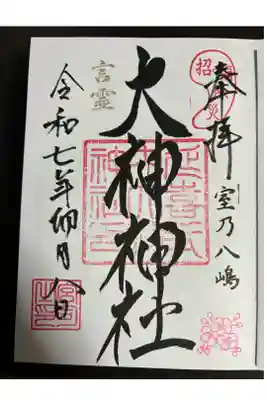 奉拝
室乃八嶋
大神神社
言霊
令和七年卯月八日